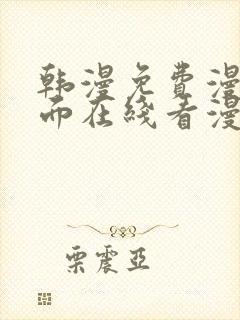 韩漫免费漫
而在线看漫
栗震亞